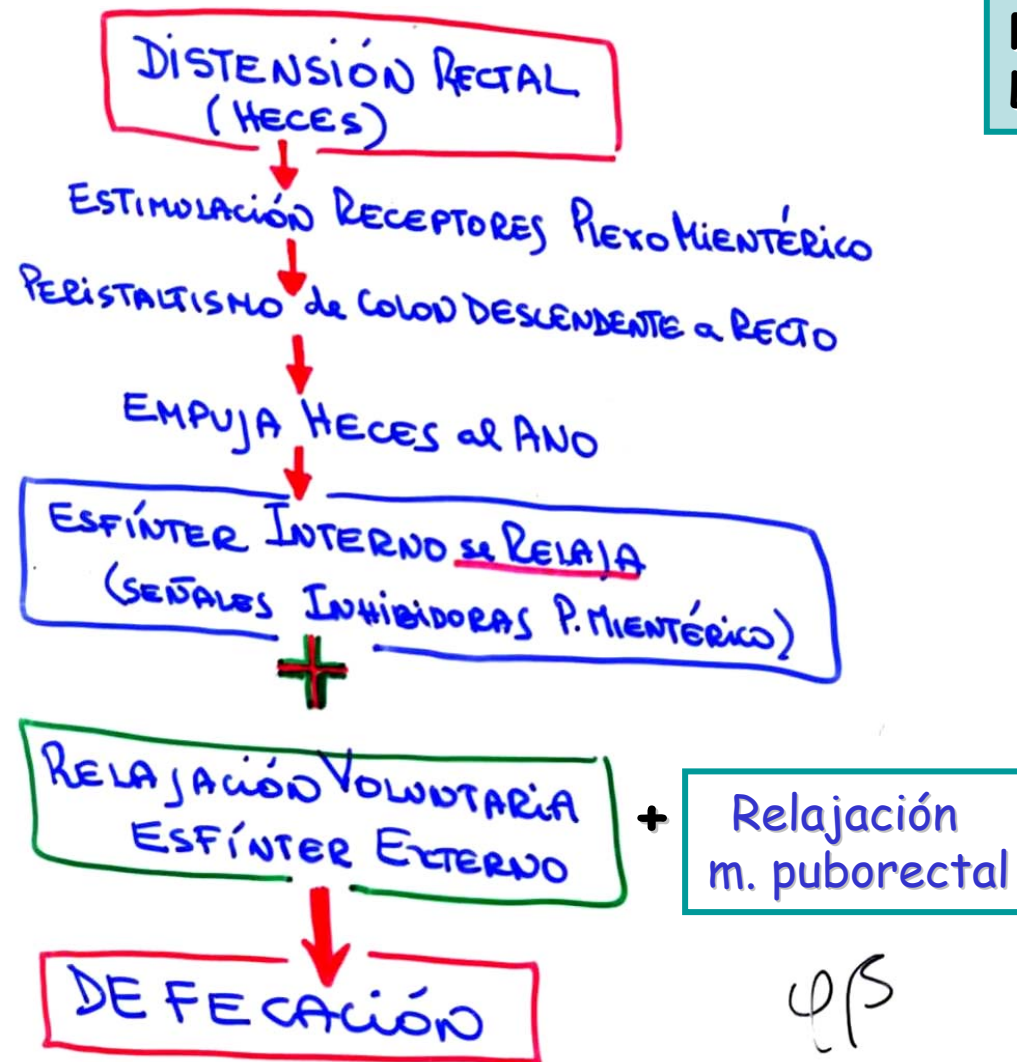 DISTENSIÓN RECTAL
(HECES)
ESTIMULACIÓN RECEPTORES PLEXO MIENTÉRICO
PERISTALTISMO de COLON DESCENDENTE a RECTO
EMPUJA HECES al ANO
ESFÍNTER INTERNO se RELAJA
(SEÑALES INHIBIDORAS P. MIENTÉRICO)
+
RELAJACIÓN VOLUNTARIA
ESFÍNTER EXTERNO
+
Relajación
m. puborectal
DEFECACIÓN